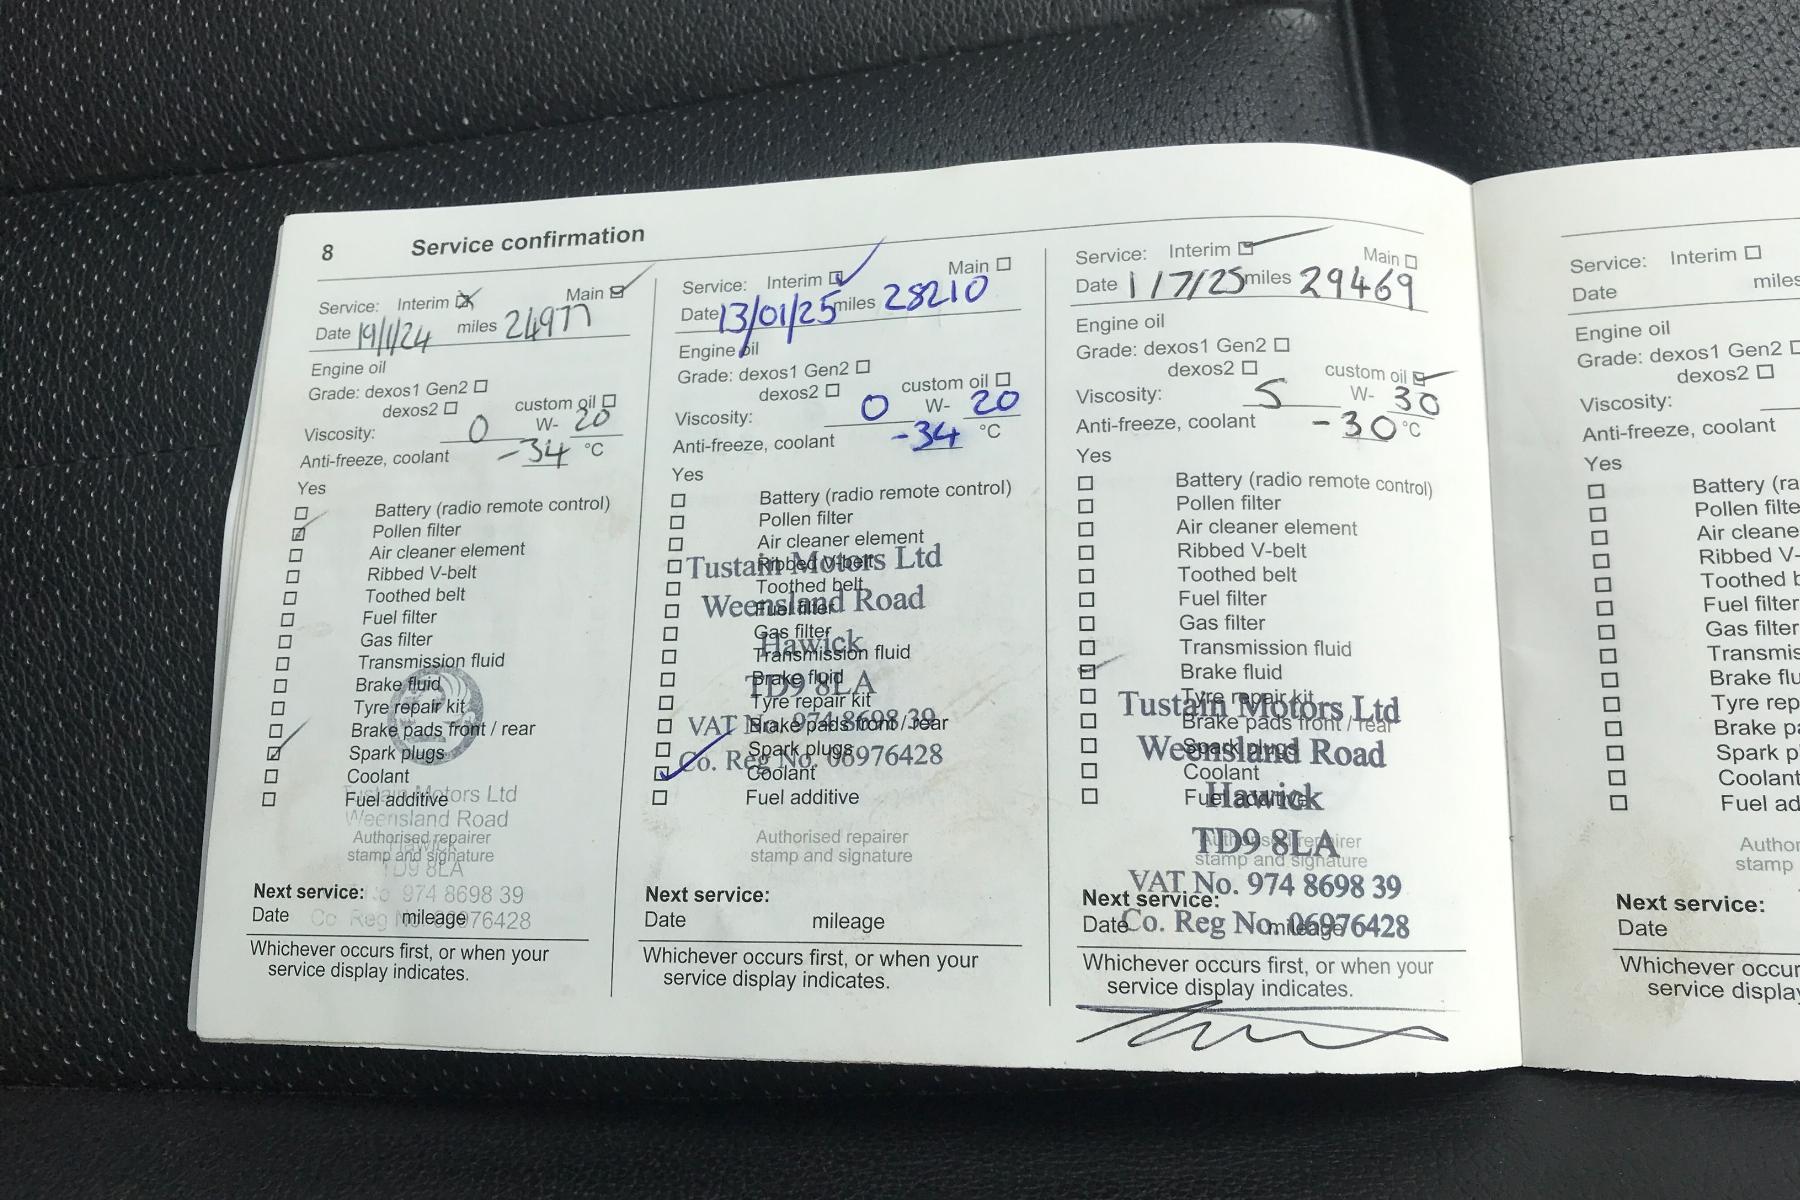 8 Service confirmation
Service: Interim Main
Date 19/1/24 miles 24977
Engine oil
Grade: dexos1 Gen2
dexos2 custom oil
Viscosity: 0 W- 20
Anti-freeze, coolant -34 °C
Yes
Battery (radio remote control)
Pollen filter
Air cleaner element
Ribbed V-belt
Toothed belt
Fuel filter
Gas filter
Transmission fluid
Brake fluid
Tyre repair kit
Brake pads front / rear
Spark plugs
Coolant
Fuel additive
Tustain Motors Ltd
Weensland Road
Authorised repairer
Hawick
stamp and signature
TD9 8LA
Next service:
No 974 8698 39
Date mileage
Co Reg No 06976428
Whichever occurs first, or when your
service display indicates.
Service: Interim Main
Date 13/01/25 miles 28210
Engine oil
Grade: dexos1 Gen2
dexos2 custom oil
Viscosity: 0 W- 20
Anti-freeze, coolant -34 °C
Yes
Battery (radio remote control)
Pollen filter
Air cleaner element
Ribbed V-belt
Toothed belt
Fuel filter
Gas filter
Transmission fluid
Brake fluid
Tyre repair kit
Brake pads front / rear
Spark plugs
Coolant
Fuel additive
Tustain Motors Ltd
Weensland Road
Hawick
TD9 8LA
VAT No. 974 8698 39
Co. Reg No. 06976428
Authorised repairer
stamp and signature
Next service:
Date mileage
Whichever occurs first, or when your
service display indicates.
Service: Interim Main
Date 1/7/25 miles 29469
Engine oil
Grade: dexos1 Gen2
dexos2 custom oil
Viscosity: 5 W- 30
Anti-freeze, coolant -30 °C
Yes
Battery (radio remote control)
Pollen filter
Air cleaner element
Ribbed V-belt
Toothed belt
Fuel filter
Gas filter
Transmission fluid
Brake fluid
Tyre repair kit
Brake pads front / rear
Spark plugs
Coolant
Fuel additive
Tustain Motors Ltd
Weensland Road
Hawick
TD9 8LA
VAT No. 974 8698 39
Co. Reg No. 06976428
Authorised repairer
stamp and signature
Next service:
Date mileage
Whichever occurs first, or when your
service display indicates.
Service: Interim
Date miles
Engine oil
Grade: dexos1 Gen2
dexos2
Viscosity:
Anti-freeze, coolant
Yes
Battery (ra
Pollen filte
Air cleane
Ribbed V-
Toothed b
Fuel filter
Gas filter
Transmis
Brake flu
Tyre rep
Brake pa
Spark p
Coolant
Fuel ad
Author
stamp
Next service:
Date
Whichever occur
service display